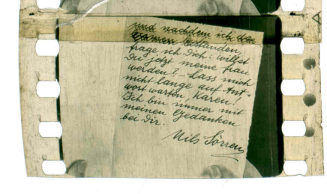 und nachdem ich das
Examen bestanden
frage ich Dich: willst
Du jetzt meine Frau
werden? Lass mich
nicht lange auf Ant-
wort warten, Karen!
Ich bin immer mit
meinen Gedanken
bei Dir.
Nils